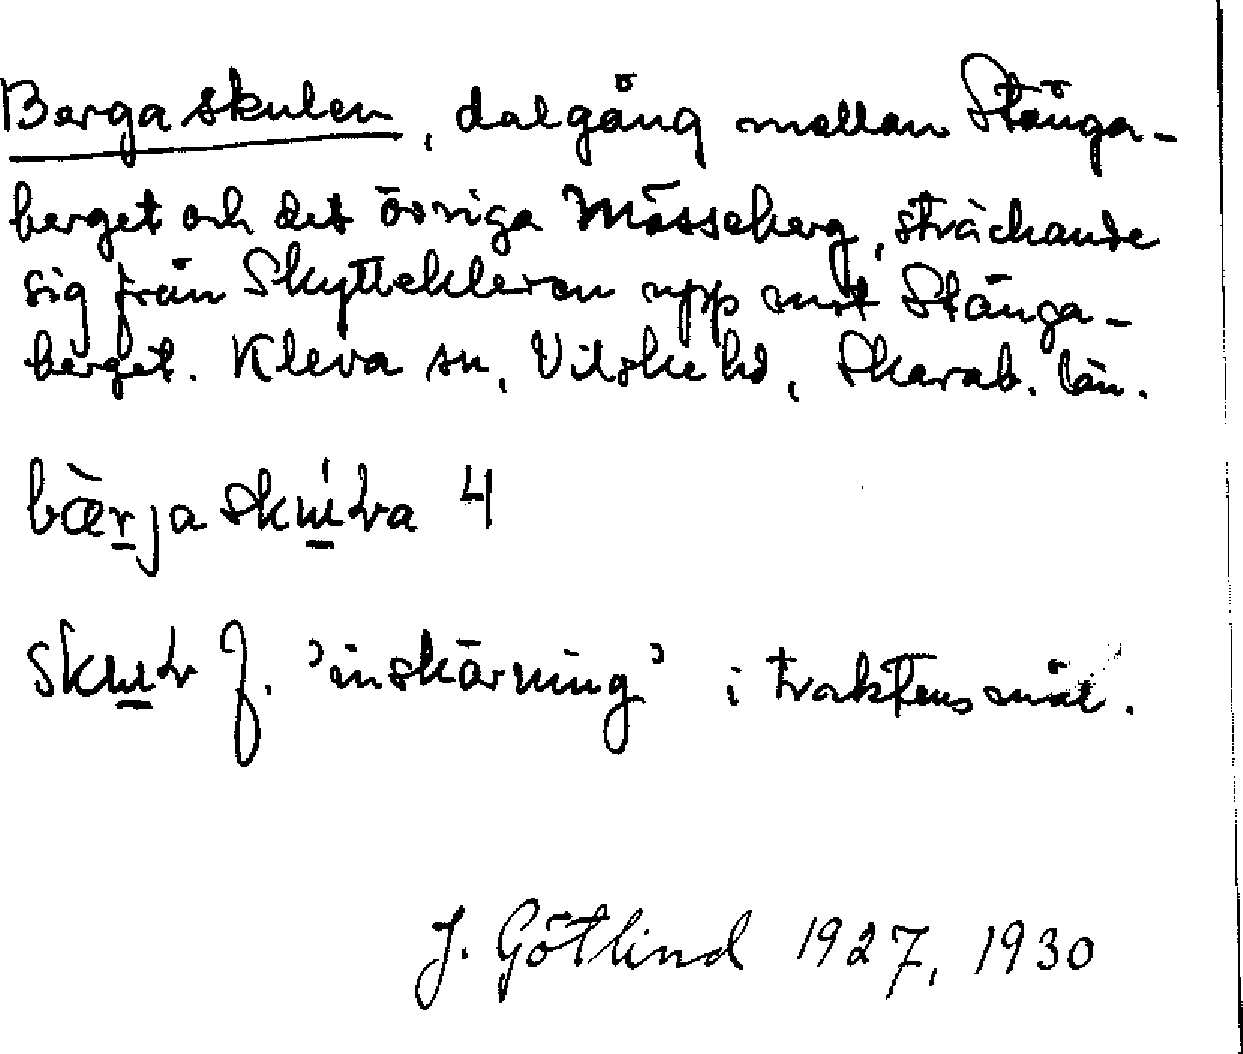 Bergaskulen, dalgång mellan Stånga-
berget och det övriga Mösseberg, sträckande
sig från Skyttekleven upp mot Stånga-
berget. Kleva sn, Vilske hd, Skarab. län.
bæ̀r̠ja
4
f. 'inskärning' i traktens mål.
J. Götlind 1927, 1930